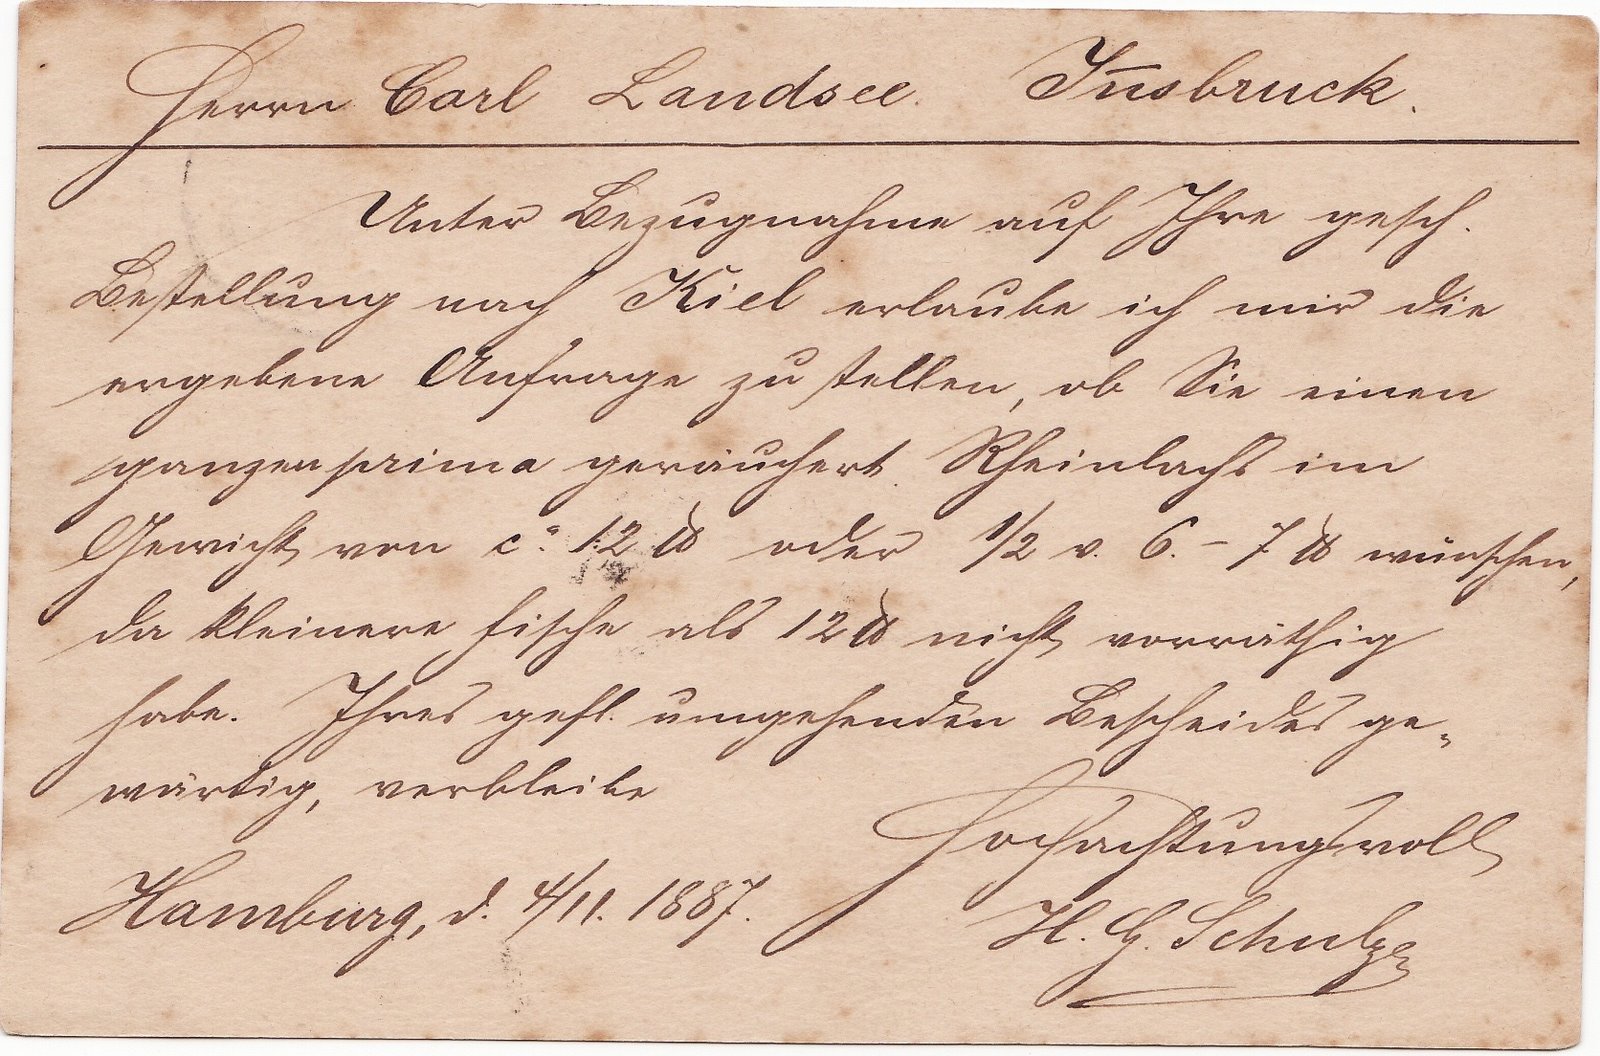 Herrn Carl Landsee. Insbruck.
Unter Bezugnahme auf Ihre gesch.
Bestellung nach Kiel erlaube ich mir die
ergebene Anfrage zu stellen, ob Sie einen
ganzen prima geräuchert. Rheinlachs im
Gewicht von ca. 12 ℔ oder 1/2 v. 6.–7 ℔ wünschen,
da kleinere Fische als 12 ℔ nicht vorräthig
habe. Ihres gefl. umgehenden Bescheides ge-
wärtig, verbleibe
Hochachtungsvoll
Hamburg, d. 4/11. 1887.
H. G. Schulz